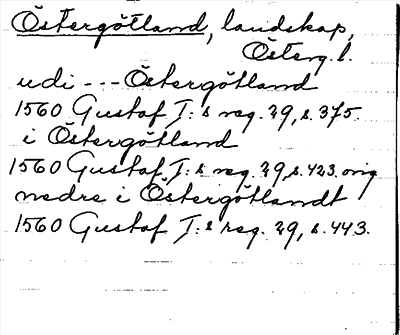 Östergötland, landskap,
Österg. l.
udi --- Östergötland
1560 Gustaf I:s reg. 29, s. 375.
i Östergötland
1560 Gustaf I:s reg. 29, s. 423. orig
nedre i Östergötlandt
1560 Gustaf I:s reg. 29, s. 443.